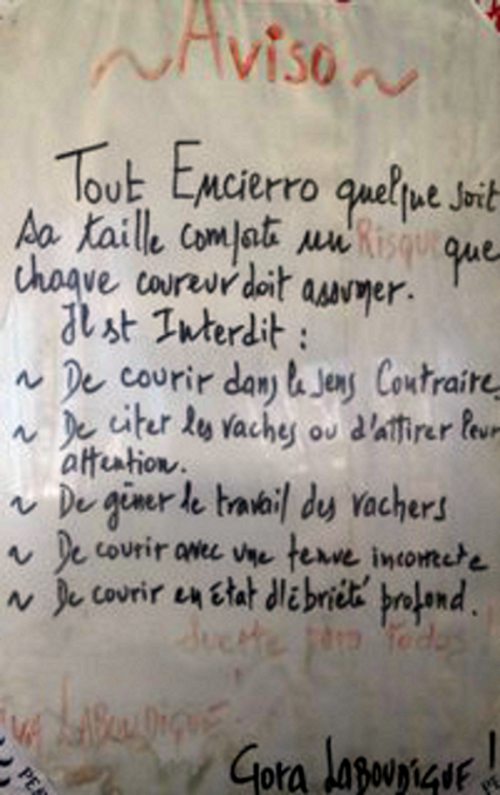 ~ Aviso ~
Tout Encierro quelque soit
sa taille comporte un Risque que
chaque coureur doit assumer.
Il st Interdit :
~ De courir dans le sens Contraire.
~ De citer les vaches ou d'attirer leur
attention.
~ De gêner le travail des vachers
~ De courir avec une tenue incorrecte
~ De courir en état d'ébriété profond.
Suerte para Todos !
LABOUDIGUE
Gora LABOUDIGUE !